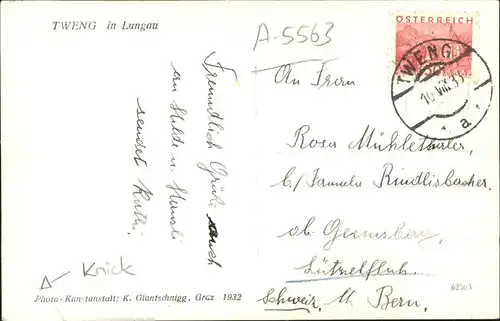 TWENG in Lungau
A-5563
ÖSTERREICH
TWENG
14.VIII.33
* a *
Freundlich Grüße auch
an Hilde u. Hansli
sendet Kathi.
An Frau
Rosa Mühlethaler,
b/ Familie Rindlisbacher
ob.
Lützelflüh.
Schweiz, Kt. Bern.
Knick
Photo-Kunstanstalt: K. Glantschnigg, Graz 1932